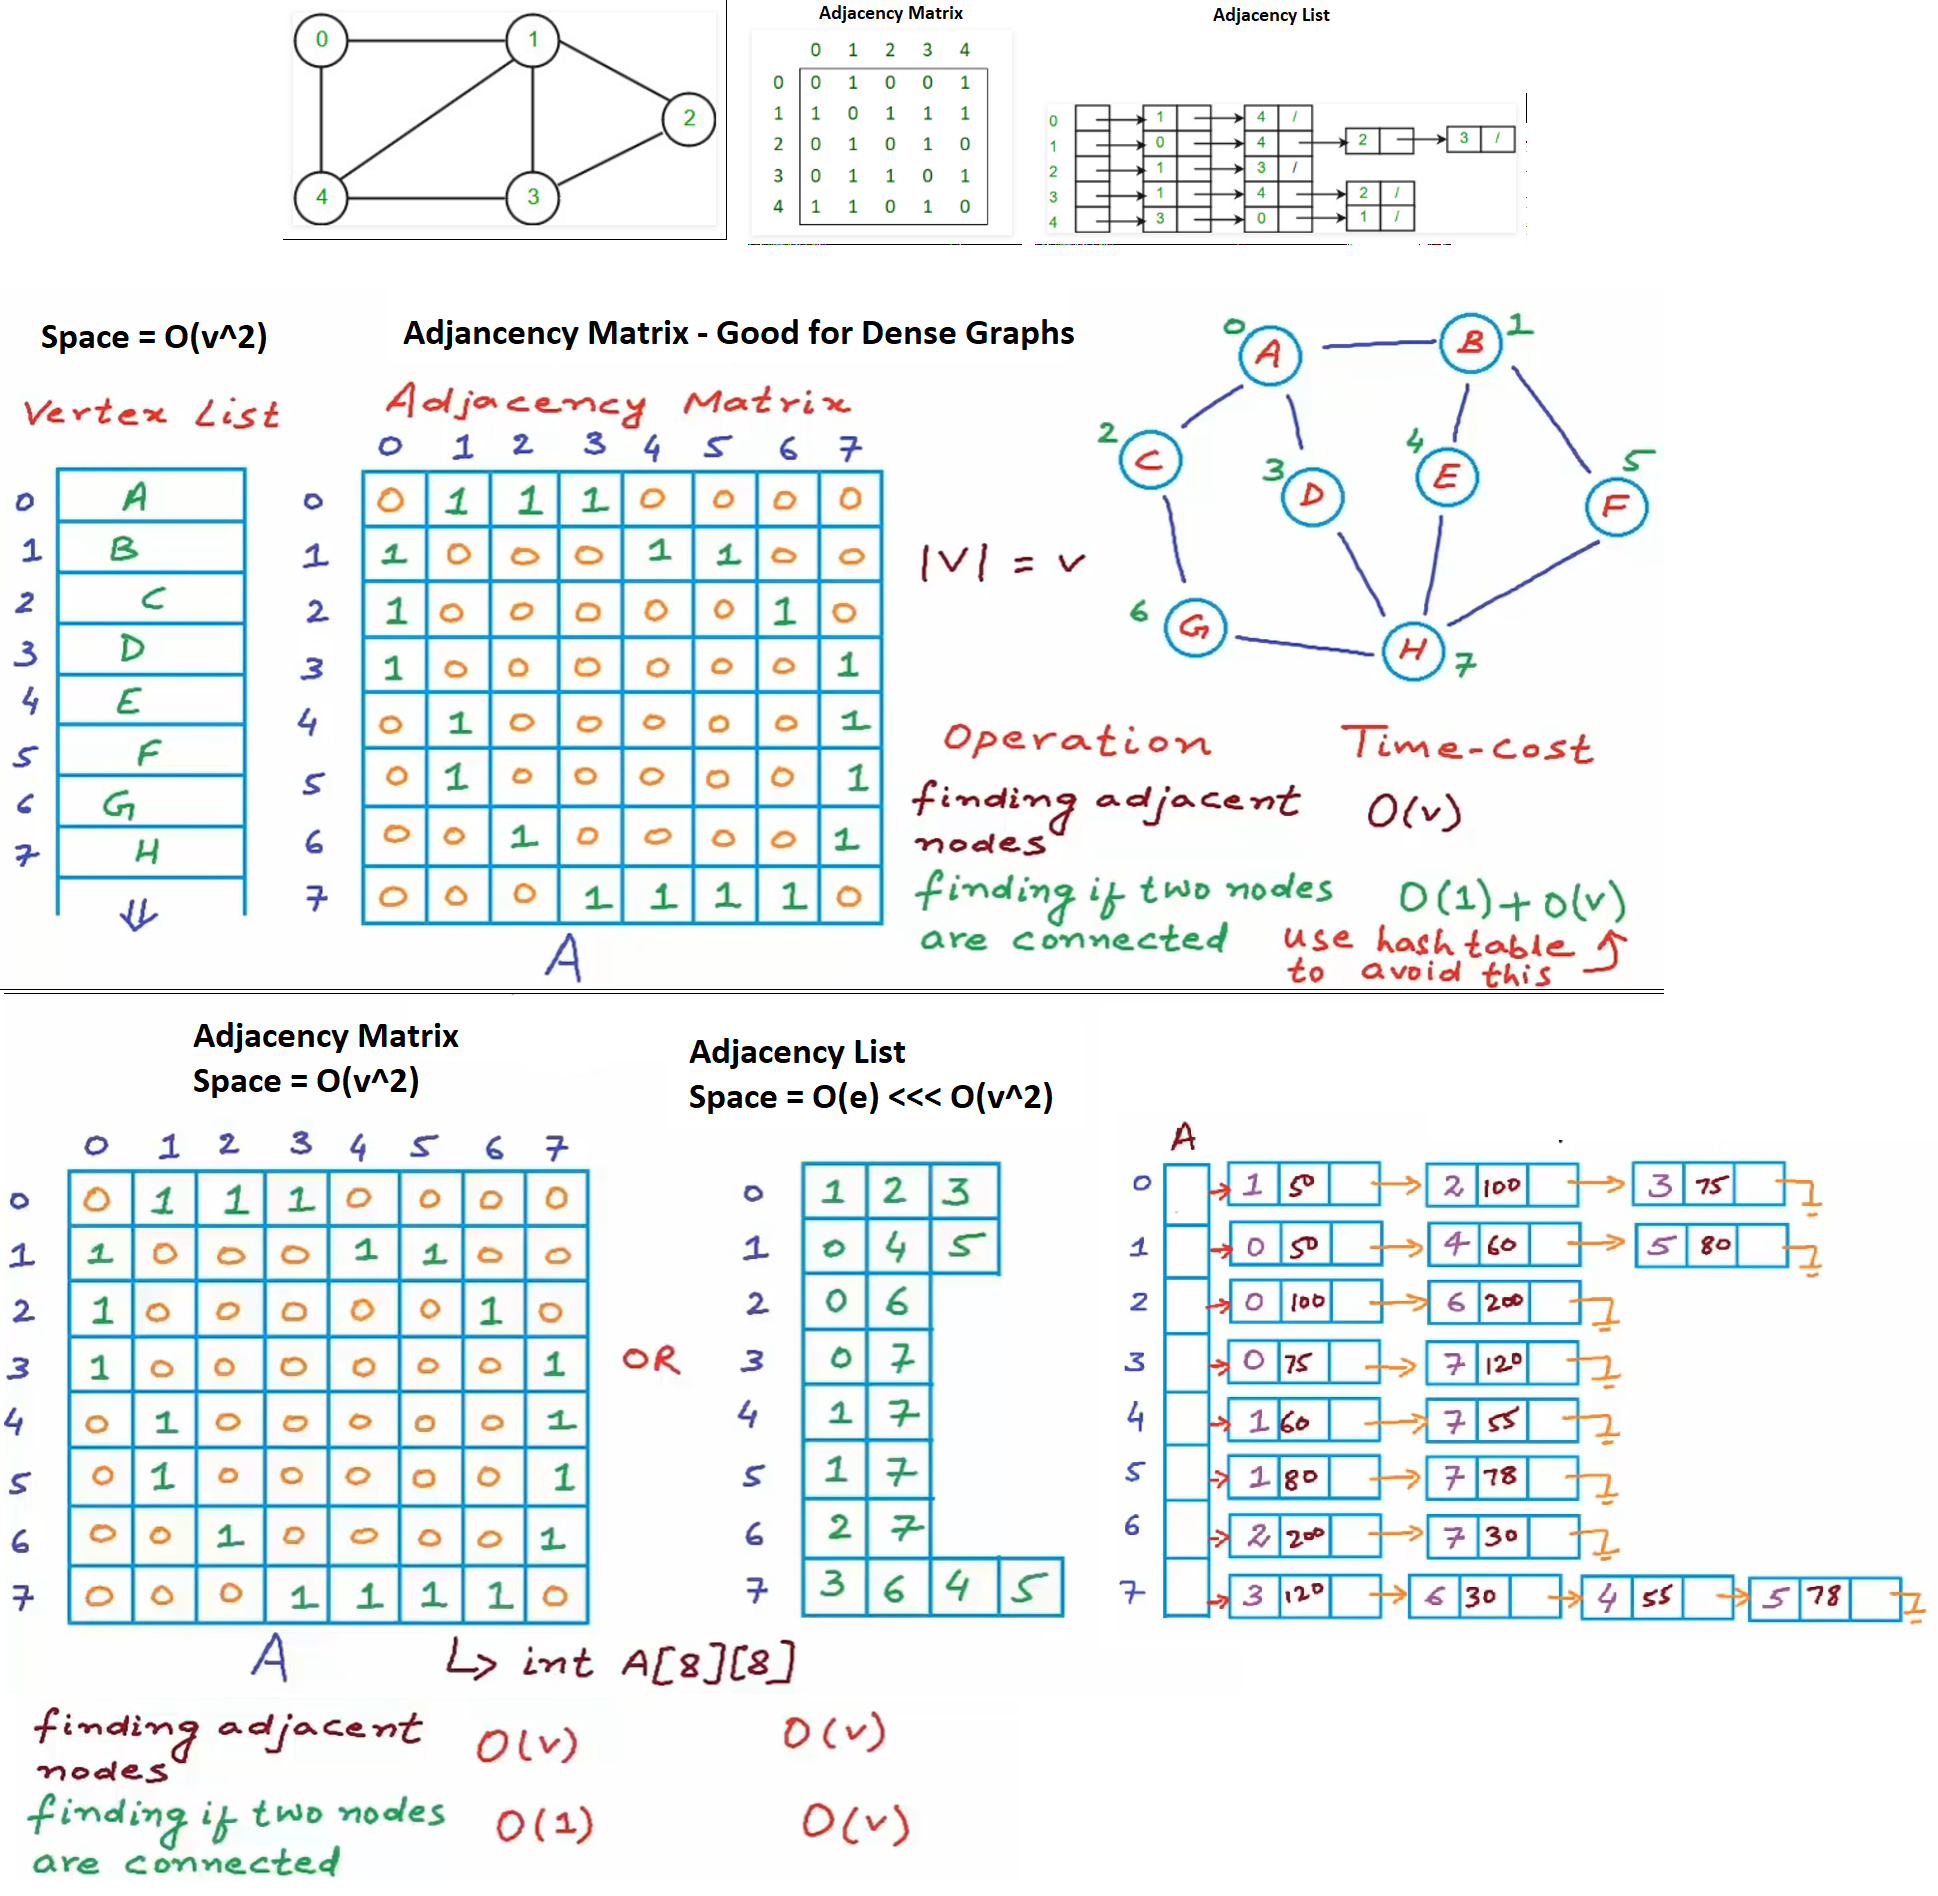 Adjacency Matrix
Adjacency List
0
1
2
4
3
0 1 2 3 4
0 0 1 0 0 1
1 1 0 1 1 1
2 0 1 0 1 0
3 0 1 1 0 1
4 1 1 0 1 0
0 1 4 /
1 0 4 2 3 /
2 1 3 /
3 1 4 2 /
4 3 0 1 /
Space = O(v^2)
Adjancency Matrix - Good for Dense Graphs
Vertex List
0 A
1 B
2 C
3 D
4 E
5 F
6 G
7 H
Adjacency Matrix
0 1 2 3 4 5 6 7
0 0 1 1 1 0 0 0 0
1 1 0 0 0 1 1 0 0
2 1 0 0 0 0 0 1 0
3 1 0 0 0 0 0 0 1
4 0 1 0 0 0 0 0 1
5 0 1 0 0 0 0 0 1
6 0 0 1 0 0 0 0 1
7 0 0 0 1 1 1 1 0
A
|V| = v
0 A
B 1
2 C
3 D
4 E
5 F
6 G
H 7
Operation Time-cost
finding adjacent O(v)
nodes
finding if two nodes O(1)+O(v)
are connected use hash table
to avoid this
Adjacency Matrix
Space = O(v^2)
Adjacency List
Space = O(e) <<< O(v^2)
0 1 2 3 4 5 6 7
0 0 1 1 1 0 0 0 0
1 1 0 0 0 1 1 0 0
2 1 0 0 0 0 0 1 0
3 1 0 0 0 0 0 0 1
4 0 1 0 0 0 0 0 1
5 0 1 0 0 0 0 0 1
6 0 0 1 0 0 0 0 1
7 0 0 0 1 1 1 1 0
A
int A[8][8]
OR
0 1 2 3
1 0 4 5
2 0 6
3 0 7
4 1 7
5 1 7
6 2 7
7 3 6 4 5
A
0 1 50 2 100 3 75
1 0 50 4 60 5 80
2 0 100 6 200
3 0 75 7 120
4 1 60 7 55
5 1 80 7 78
6 2 200 7 30
7 3 120 6 30 4 55 5 78
finding adjacent O(v) O(v)
nodes
finding if two nodes O(1) O(v)
are connected